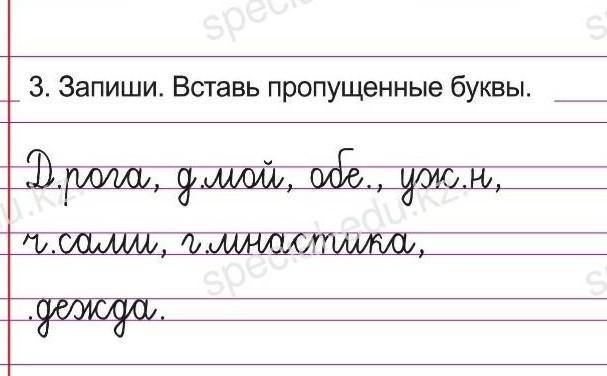 3. Запиши. Вставь пропущенные буквы.
Д.рога, д.мой, обе., уж.н,
ч.сами, г.мнастика,
.дежда.